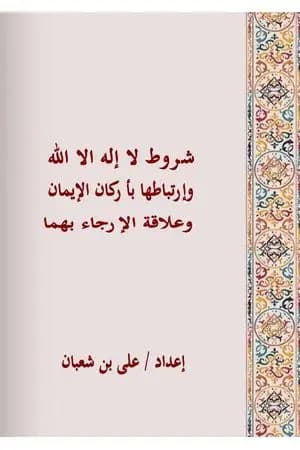 شروط لا إله الا الله
وإرتباطها بأ ركان الإيمان
وعلاقة الإ رجاء بهما
إعداد / على بن شعبان